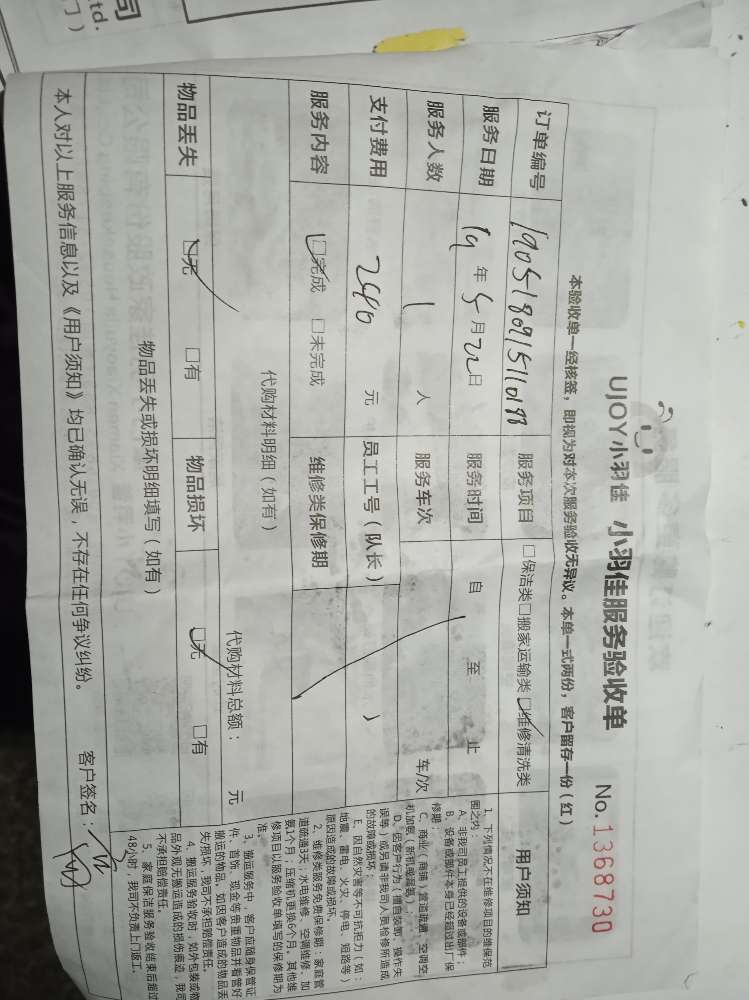 UJOY小羽佳 小羽佳服务验收单 No.1368730
本验收单一经核签，即视为对本次服务验收无异议。本单一式两份，客户留存一份（红）
订单编号 服务项目 □保洁类□搬家运输类□维修清洗类 用户须知
服务日期 19年5月22日 服务时间 自 至 止
服务人数 1人 服务车次 车/次
支付费用 240元 员工工号（队长）
服务内容 □完成 □未完成 维修类保修期
代购材料明细（如有） 代购材料总额： 元
物品丢失 □无 □有 物品损坏 □无 □有
物品丢失或损坏明细填写（如有）
本人对以上服务信息以及《用户须知》均已确认无误，不存在任何争议纠纷。 客户签名：
1、下列情况不在维修项目的维保范
围之内：
A、非我司员工提供的设备或部件；
B、设备或部件本身已经超过出厂保
修期；
C、商业（商铺）管道疏通、空调空
机加氨（新机泄漏氨）；
D、因客户行为（擅自装卸、操作失
误等）或另请非我司人员检修所造成
的故障或损坏；
E、因自然灾害等不可抗拒力（如：
地震、雷电、火灾、停电、短路等）
原因造成的故障或损坏。
2、维修类服务免费保修期：家庭管
道疏通3天；水电维修、空调维修、加
氨1个月；压缩机更换6个月。其他维
修项目以服务验收单填写的保修期为
准。
3、搬运服务中，客户应随身保管证
件、首饰、现金等贵重物品并看管好
搬运的物品。如因客户造成的物品丢
失/损坏，我司不承担赔偿责任。
4、搬运服务验收时，如外包装或物
品外观无搬运造成的损伤痕迹，我司
不承担赔偿责任。
5、家庭保洁服务验收结束后超过
48小时，我司不负责上门返工。